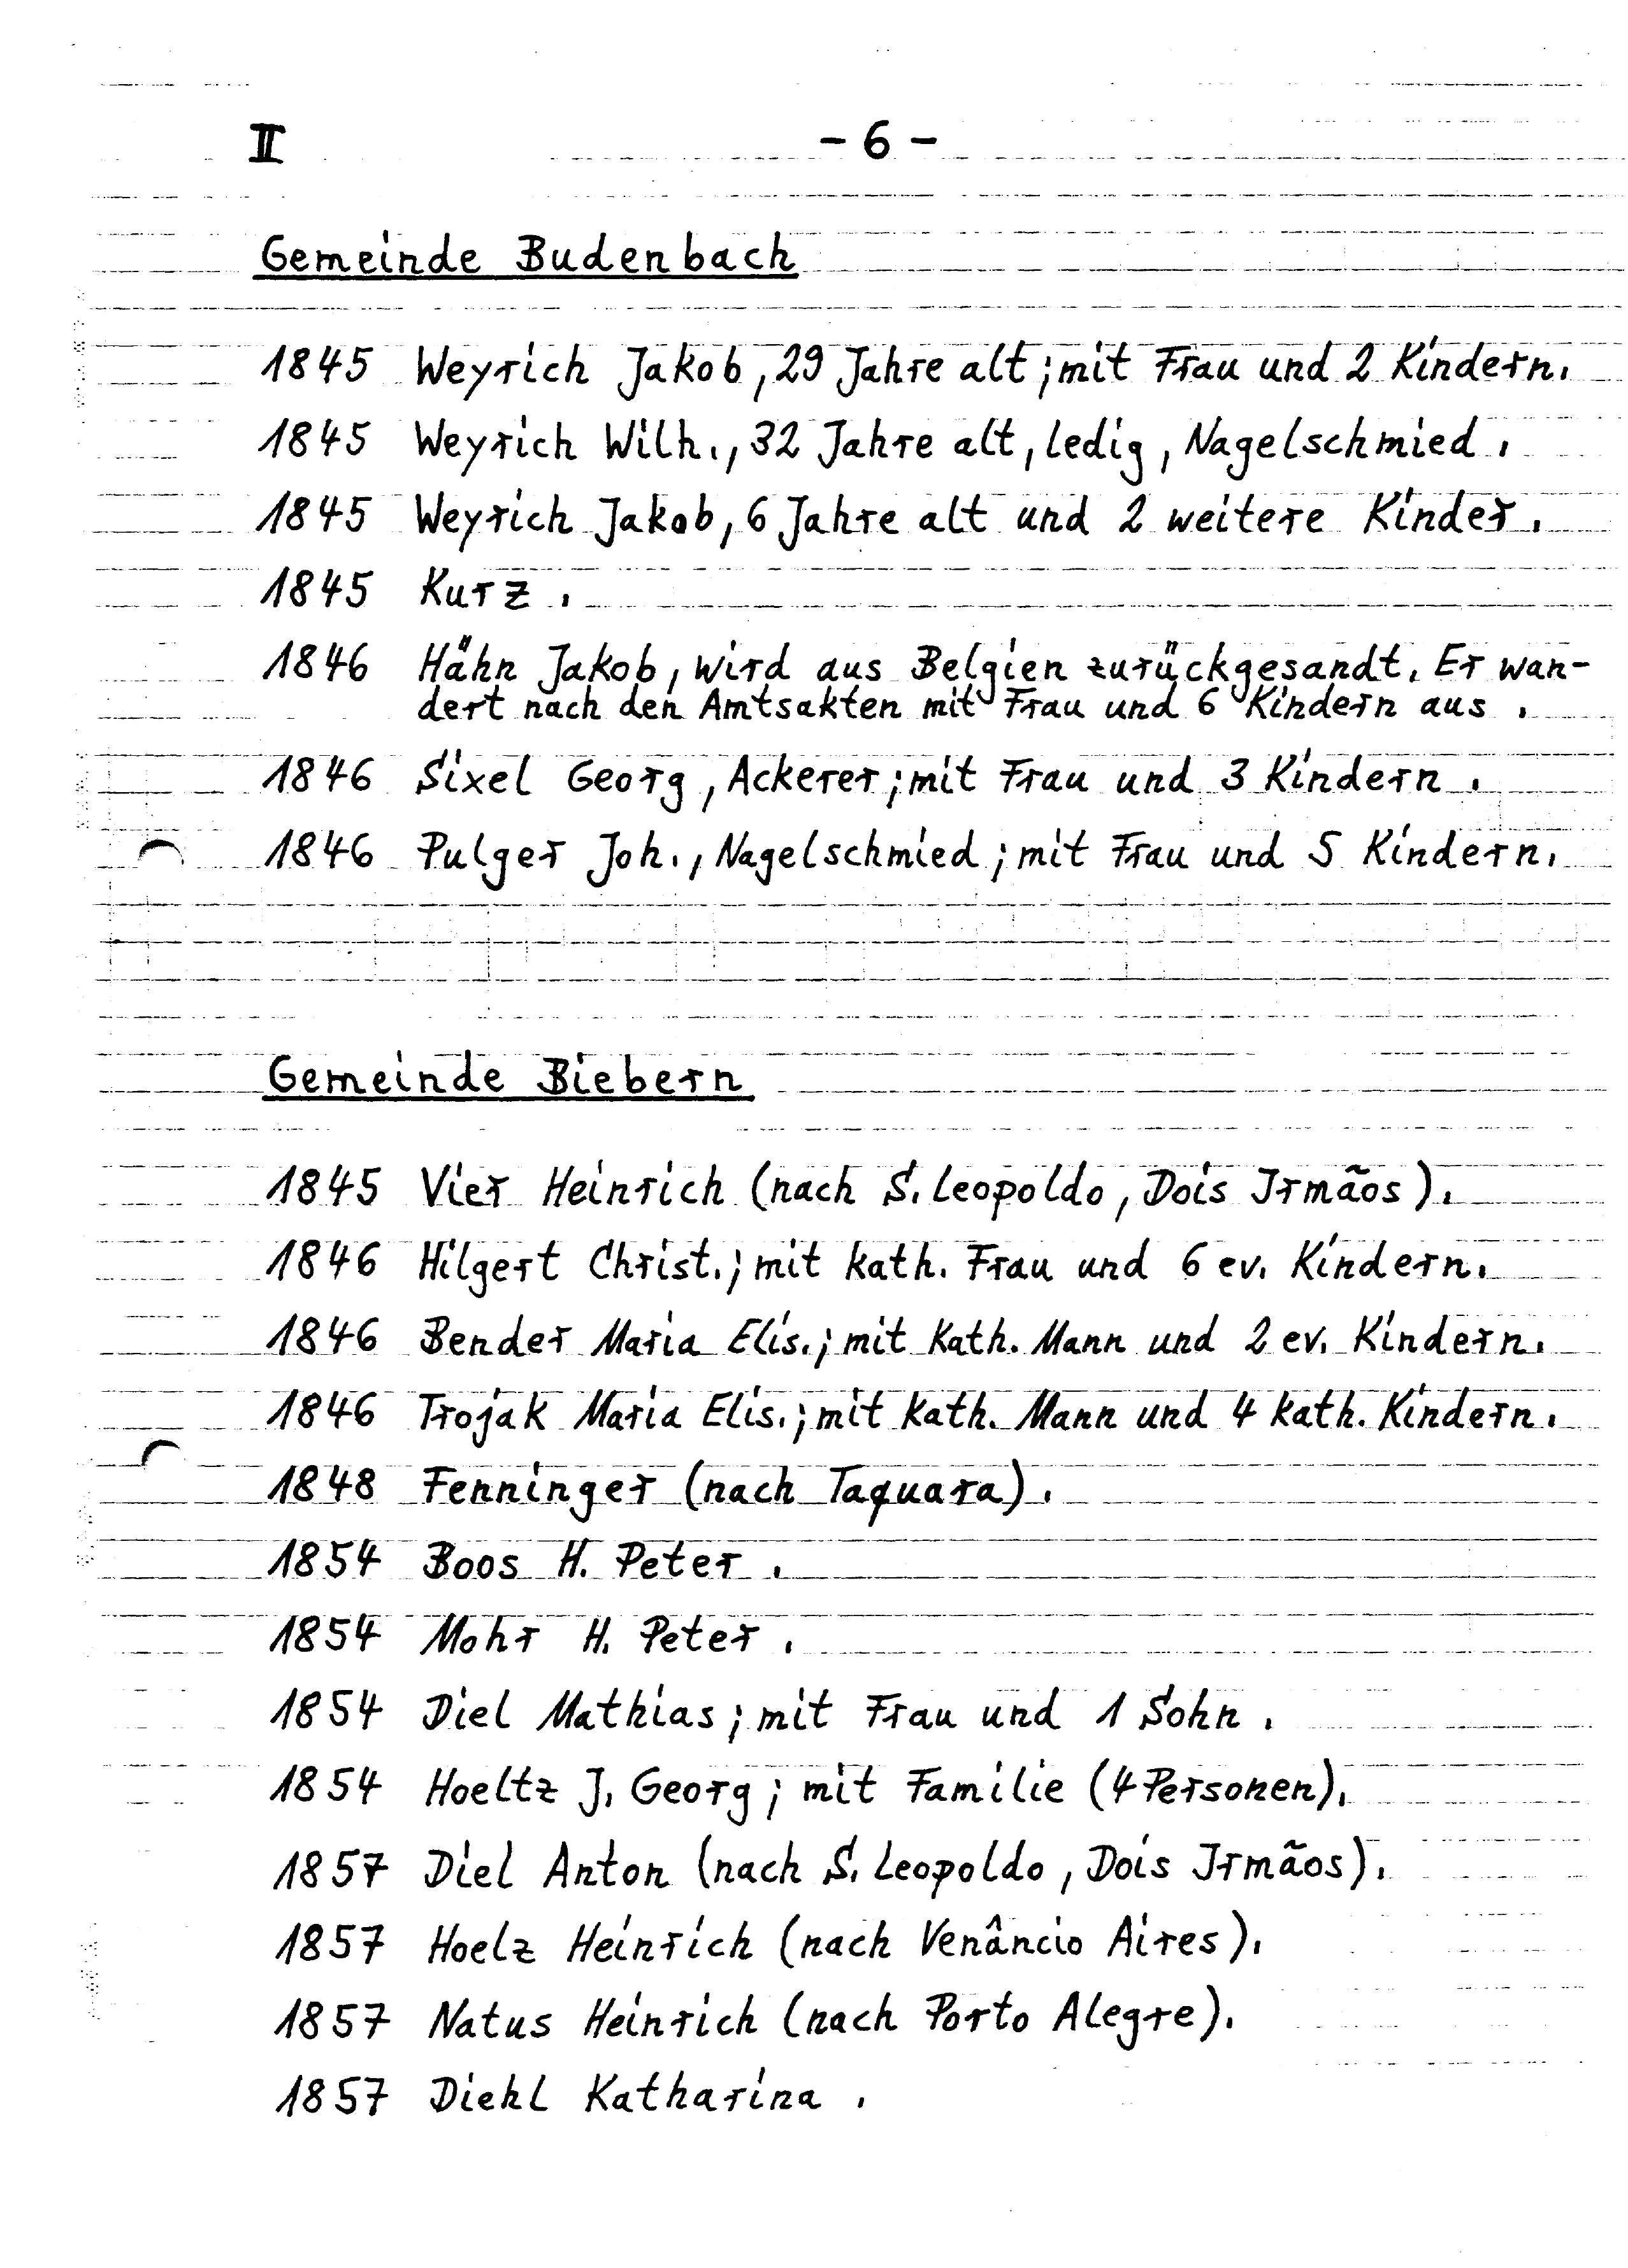 II - 6 -
Gemeinde Budenbach
1845 Weyrich Jakob, 29 Jahre alt; mit Frau und 2 Kindern.
1845 Weyrich Wilh., 32 Jahre alt, ledig, Nagelschmied.
1845 Weyrich Jakob, 6 Jahre alt und 2 weitere Kinder.
1845 Kurz.
1846 Hähn Jakob, wird aus Belgien zurückgesandt. Er wan-
dert nach den Amtsakten mit Frau und 6 Kindern aus.
1846 Sixel Georg, Ackerer; mit Frau und 3 Kindern.
1846 Pulger Joh., Nagelschmied; mit Frau und 5 Kindern.
Gemeinde Biebern
1845 Vier Heinrich (nach S. Leopoldo, Dois Irmãos).
1846 Hilgert Christ.; mit kath. Frau und 6 ev. Kindern.
1846 Bender Maria Elis.; mit kath. Mann und 2 ev. Kindern.
1846 Trojak Maria Elis.; mit kath. Mann und 4 kath. Kindern.
1848 Fenninger (nach Taquara).
1854 Boos H. Peter.
1854 Mohr H. Peter.
1854 Diel Mathias; mit Frau und 1 Sohn.
1854 Hoeltz J. Georg; mit Familie (4 Personen).
1857 Diel Anton (nach S. Leopoldo, Dois Irmãos).
1857 Hoelz Heinrich (nach Venâncio Aires).
1857 Natus Heinrich (nach Porto Alegre).
1857 Diehl Katharina.